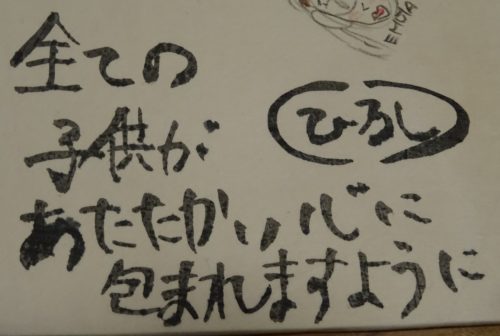 全ての
子供が
あたたかい心に
包まれますように
ひろし
EMOTA